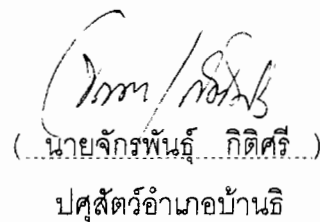 ( นายจักรพันธุ์ กิติศรี )
ปศุสัตว์อำเภอบ้านธิ